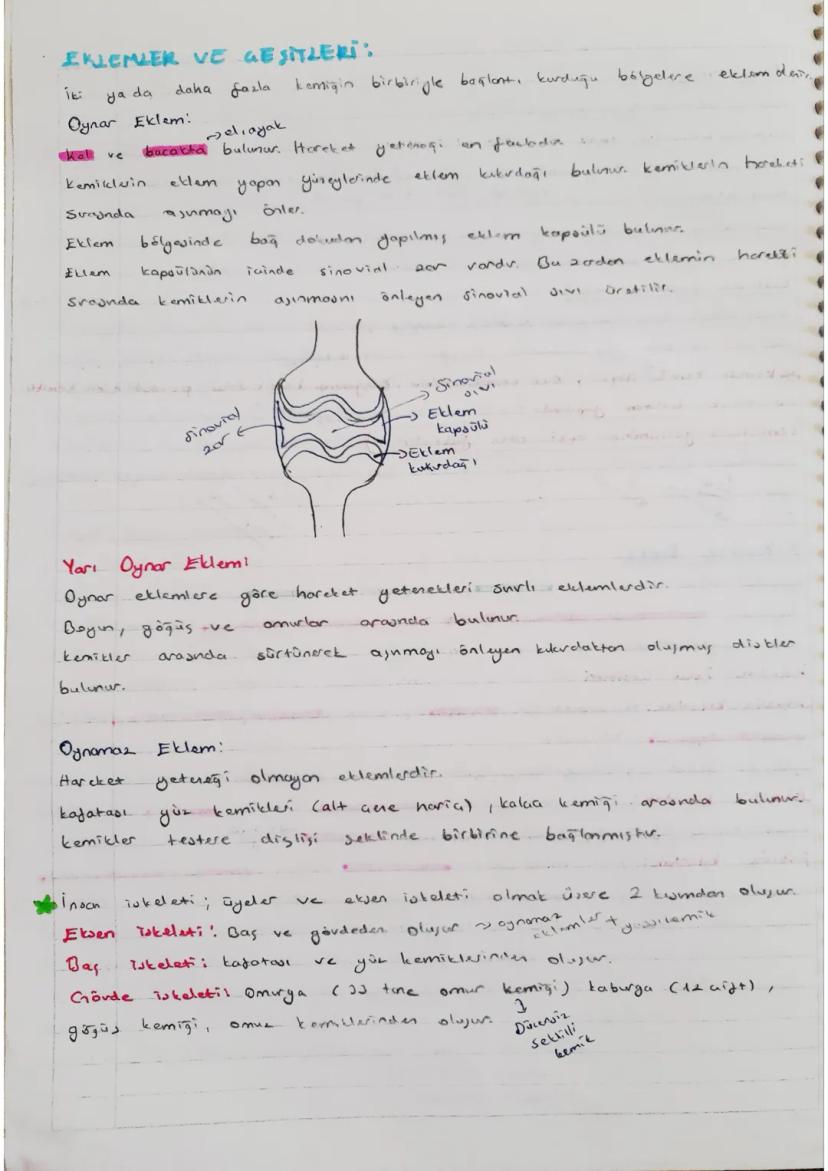 EKLEMLER VE ÇEŞİTLERİ:
İki ya da daha fazla kemiğin birbiriyle bağlantı kurduğu bölgelere eklem denir.
Oynar Eklem:
→ el, ayak
Kol ve bacakta bulunur. Hareket yeteneği en fazladır
Kemiklerin eklem yapan yüzeylerinde eklem kıkırdağı bulunur. Kemiklerin hareketi
sırasında aşınmayı önler.
Eklem bölgesinde bağ dokudan yapılmış eklem kapsülü bulunur.
Eklem kapsülünün içinde sinovial zar vardır. Bu zardan eklemin hareketi
sırasında kemiklerin aşınmasını önleyen sinovial sıvı üretilir.
Sinovial sıvı
Eklem kapsülü
Sinovial zar
Eklem kıkırdağı
Yarı Oynar Eklem:
Oynar eklemlere göre hareket yetenekleri sınırlı eklemlerdir.
Boyun, göğüs ve omurlar arasında bulunur.
Kemikler arasında sürtünerek aşınmayı önleyen kıkırdaktan oluşmuş diskler
bulunur.
Oynamaz Eklem:
Hareket yeteneği olmayan eklemlerdir.
Kafatası yüz kemikleri (alt çene hariç), kalça kemiği arasında bulunur.
Kemikler testere dişlisi şeklinde birbirine bağlanmıştır.
İnsan iskeleti; üyeler ve eksen iskeleti olmak üzere 2 kısımdan oluşur.
Eksen iskeleti: Baş ve gövdeden oluşur → oynamaz eklemler + yassı kemik
Baş iskeleti: kafatası ve yüz kemiklerinden oluşur.
Gövde iskeleti: Omurga (33 tane omur kemiği) kaburga (12 çift),
göğüs kemiği, omuz kemiklerinden oluşur.
Düzensiz
şekilli
kemik